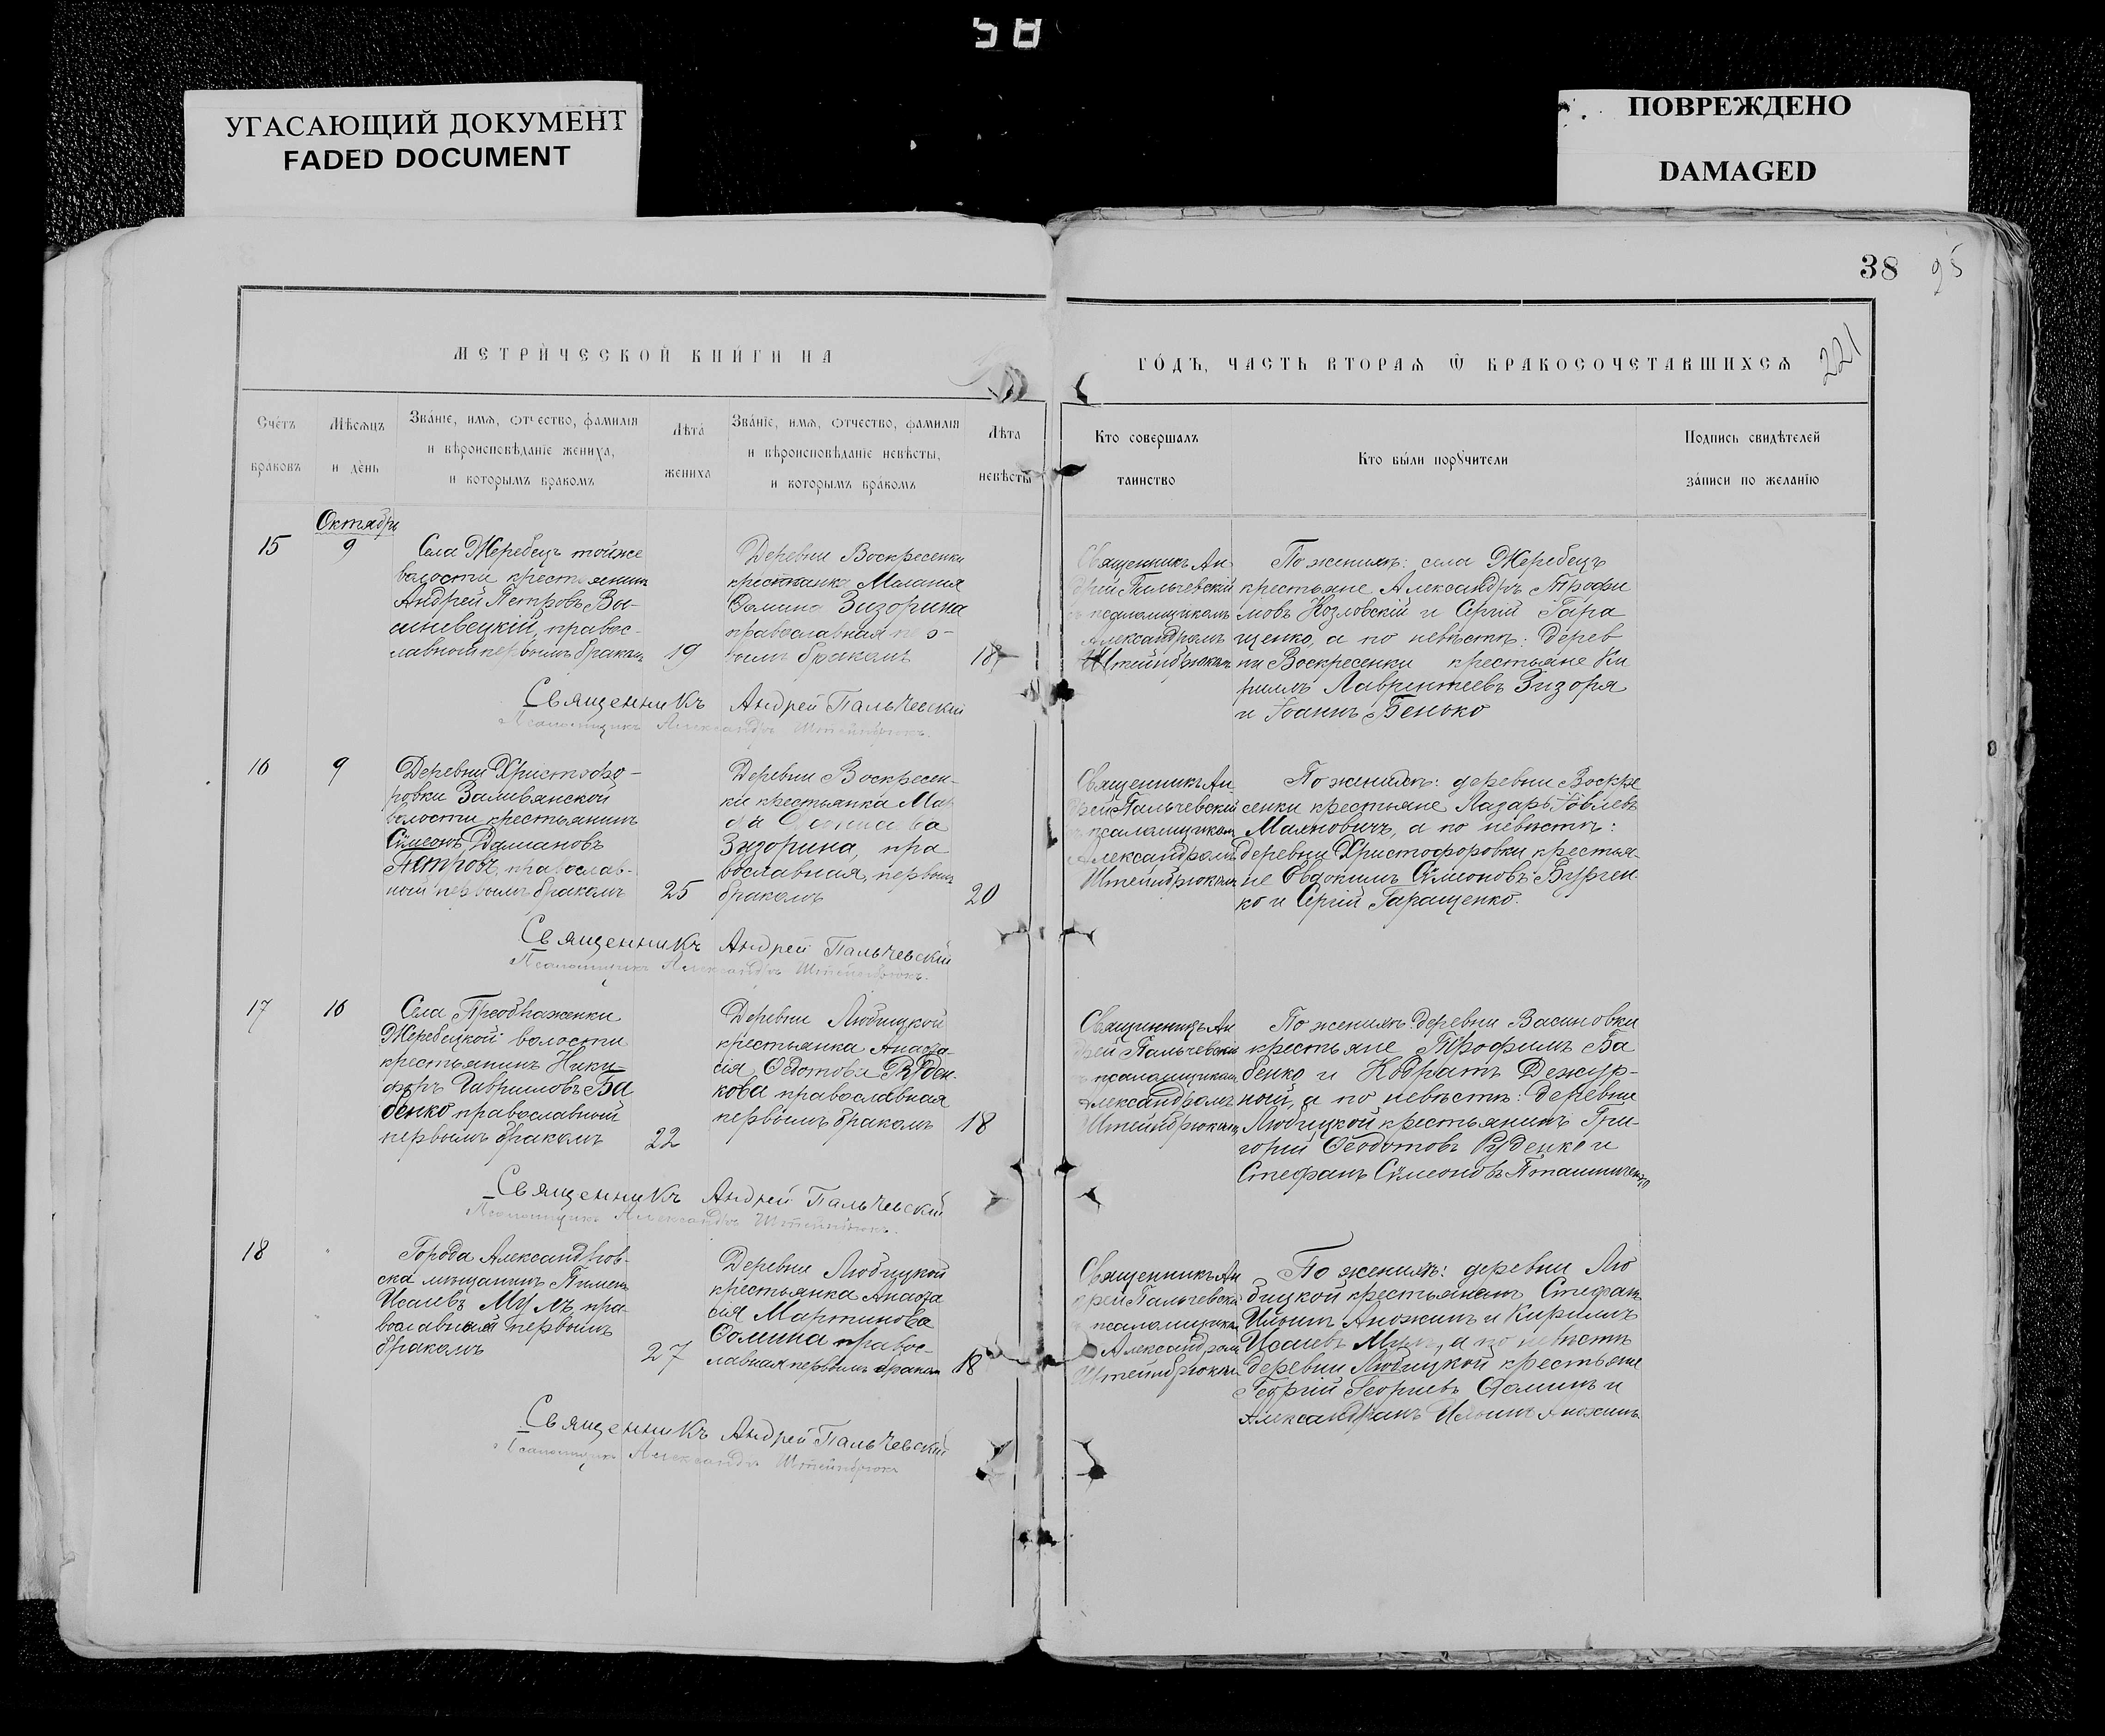 58
УГАСАЮЩИЙ ДОКУМЕНТ
FADED DOCUMENT
ПОВРЕЖДЕНО
DAMAGED
38 95
221
МЕТРИ́ЧЕСКОЙ КНИ́ГИ НА
ГО́ДЪ, ЧАСТЬ ВТОРАѦ Ѿ БРАКОСОЧЕТАВШИХСѦ
Сче́тъ
браковъ
Мѣсѧцъ
и де́нь
Зва́ніе, имѧ, ѻтчество, фамилія
и вѣроисповѣданіе жениха,
и которымъ бракомъ
Лѣта́
жениха
Зва́ніе, имѧ, ѻтчество, фамилія
и вѣроисповѣданіе невѣсты,
и которымъ бра́комъ
Лѣта
невѣсты
Кто совершалъ
таинство
Кто бы́ли порꙋчители
Подпись свидѣтелей
за́писи по желанїю
Октябрь
15
9
Села Жеребецъ тойже
волости крестьянинъ
Андрей Петровъ Вы-
шневецкій, правос-
лавный первымъ бракомъ
19
Деревни Воскресенки
крестьянка Меланія
Зизорина
православная
вымъ бракомъ
18
Священникъ Ан
дрей Пальчевскій
псаломщикомъ
Александромъ
Штейнбрюкомъ
По женихѣ: села Жеребецъ
крестьяне Александръ Трофи
мовъ Козловскій и Сергій Гара
щенко, а по невѣстѣ: дерев
ни Воскресенки крестьяне Ки
риллъ Лаврентіевъ Зизоря
и Іоаннъ Бенько
Священникъ Андрей Пальчевскій
Псаломщикъ Александръ Штейнбрюкъ.
16
9
Деревни Христофо-
ровки Заливянской
волости крестьянинъ
Сѵмеонъ Дамановъ
православ-
ный первымъ бракомъ
25
Деревни Воскресен-
ки крестьянка
Зизорина, пра
вославная, первымъ
бракомъ
20
Священникъ Ан
дрей Пальчевскій
псаломщикомъ
Александромъ
Штейнбрюкомъ
По женихѣ: деревни Воскре
сенки крестьяне Лазарь Іовлевъ
Маяновичъ, а по невѣстѣ:
деревни Христофоровки крестья-
не Евдокимъ Сѵмеоновъ Бурчен
ко и Сергій Гаращенко.
Священникъ Андрей Пальчевскій
Псаломщикъ Александръ Штейнбрюкъ.
17
16
Села Преображенки
Жеребецкой волости
крестьянинъ Ники-
форъ Гавриловъ Ба
бенко православный
первымъ бракомъ
22
Деревни Любицкой
крестьянка Анаста-
сія Ѳедотова Руден-
кова православная
первымъ бракомъ
18
Священникъ Ан
дрей Пальчевскій
псаломщикомъ
Александромъ
Штейнбрюкомъ
По женихѣ: деревни Васиновки
крестьяне Трофимъ Ба
бенко и Кодратъ Дежур-
ный, а по невѣстѣ: деревни
Любицкой крестьянинъ Гри-
горій Ѳеодотовъ Руденко и
Стефанъ Сѵмеоновъ Пташниченко
Священникъ Андрей Пальчевскій
Псаломщикъ Александръ Штейнбрюкъ.
18
Города Александров-
ска мѣщанинъ Пименъ
Исаевъ пра-
вославный первымъ
бракомъ
27
Деревни Любицкой
крестьянка Анаста
сія Мартинова
Ѳомина правос-
лавная первымъ бракомъ
18
Священникъ Ан
дрей Пальчевскій
псаломщикомъ
Александромъ
Штейнбрюкомъ
По женихѣ: деревни Лю
бицкой крестьянинъ Стефанъ
Ильинъ Анохинъ и Кириллъ
Исаевъ а по невѣстѣ
деревни Любицкой крестьяне
Георгій Георгіевъ Ѳоминъ и
Ильинъ Анохинъ
Священникъ Андрей Пальчевскій
Псаломщикъ Александръ Штейнбрюкъ